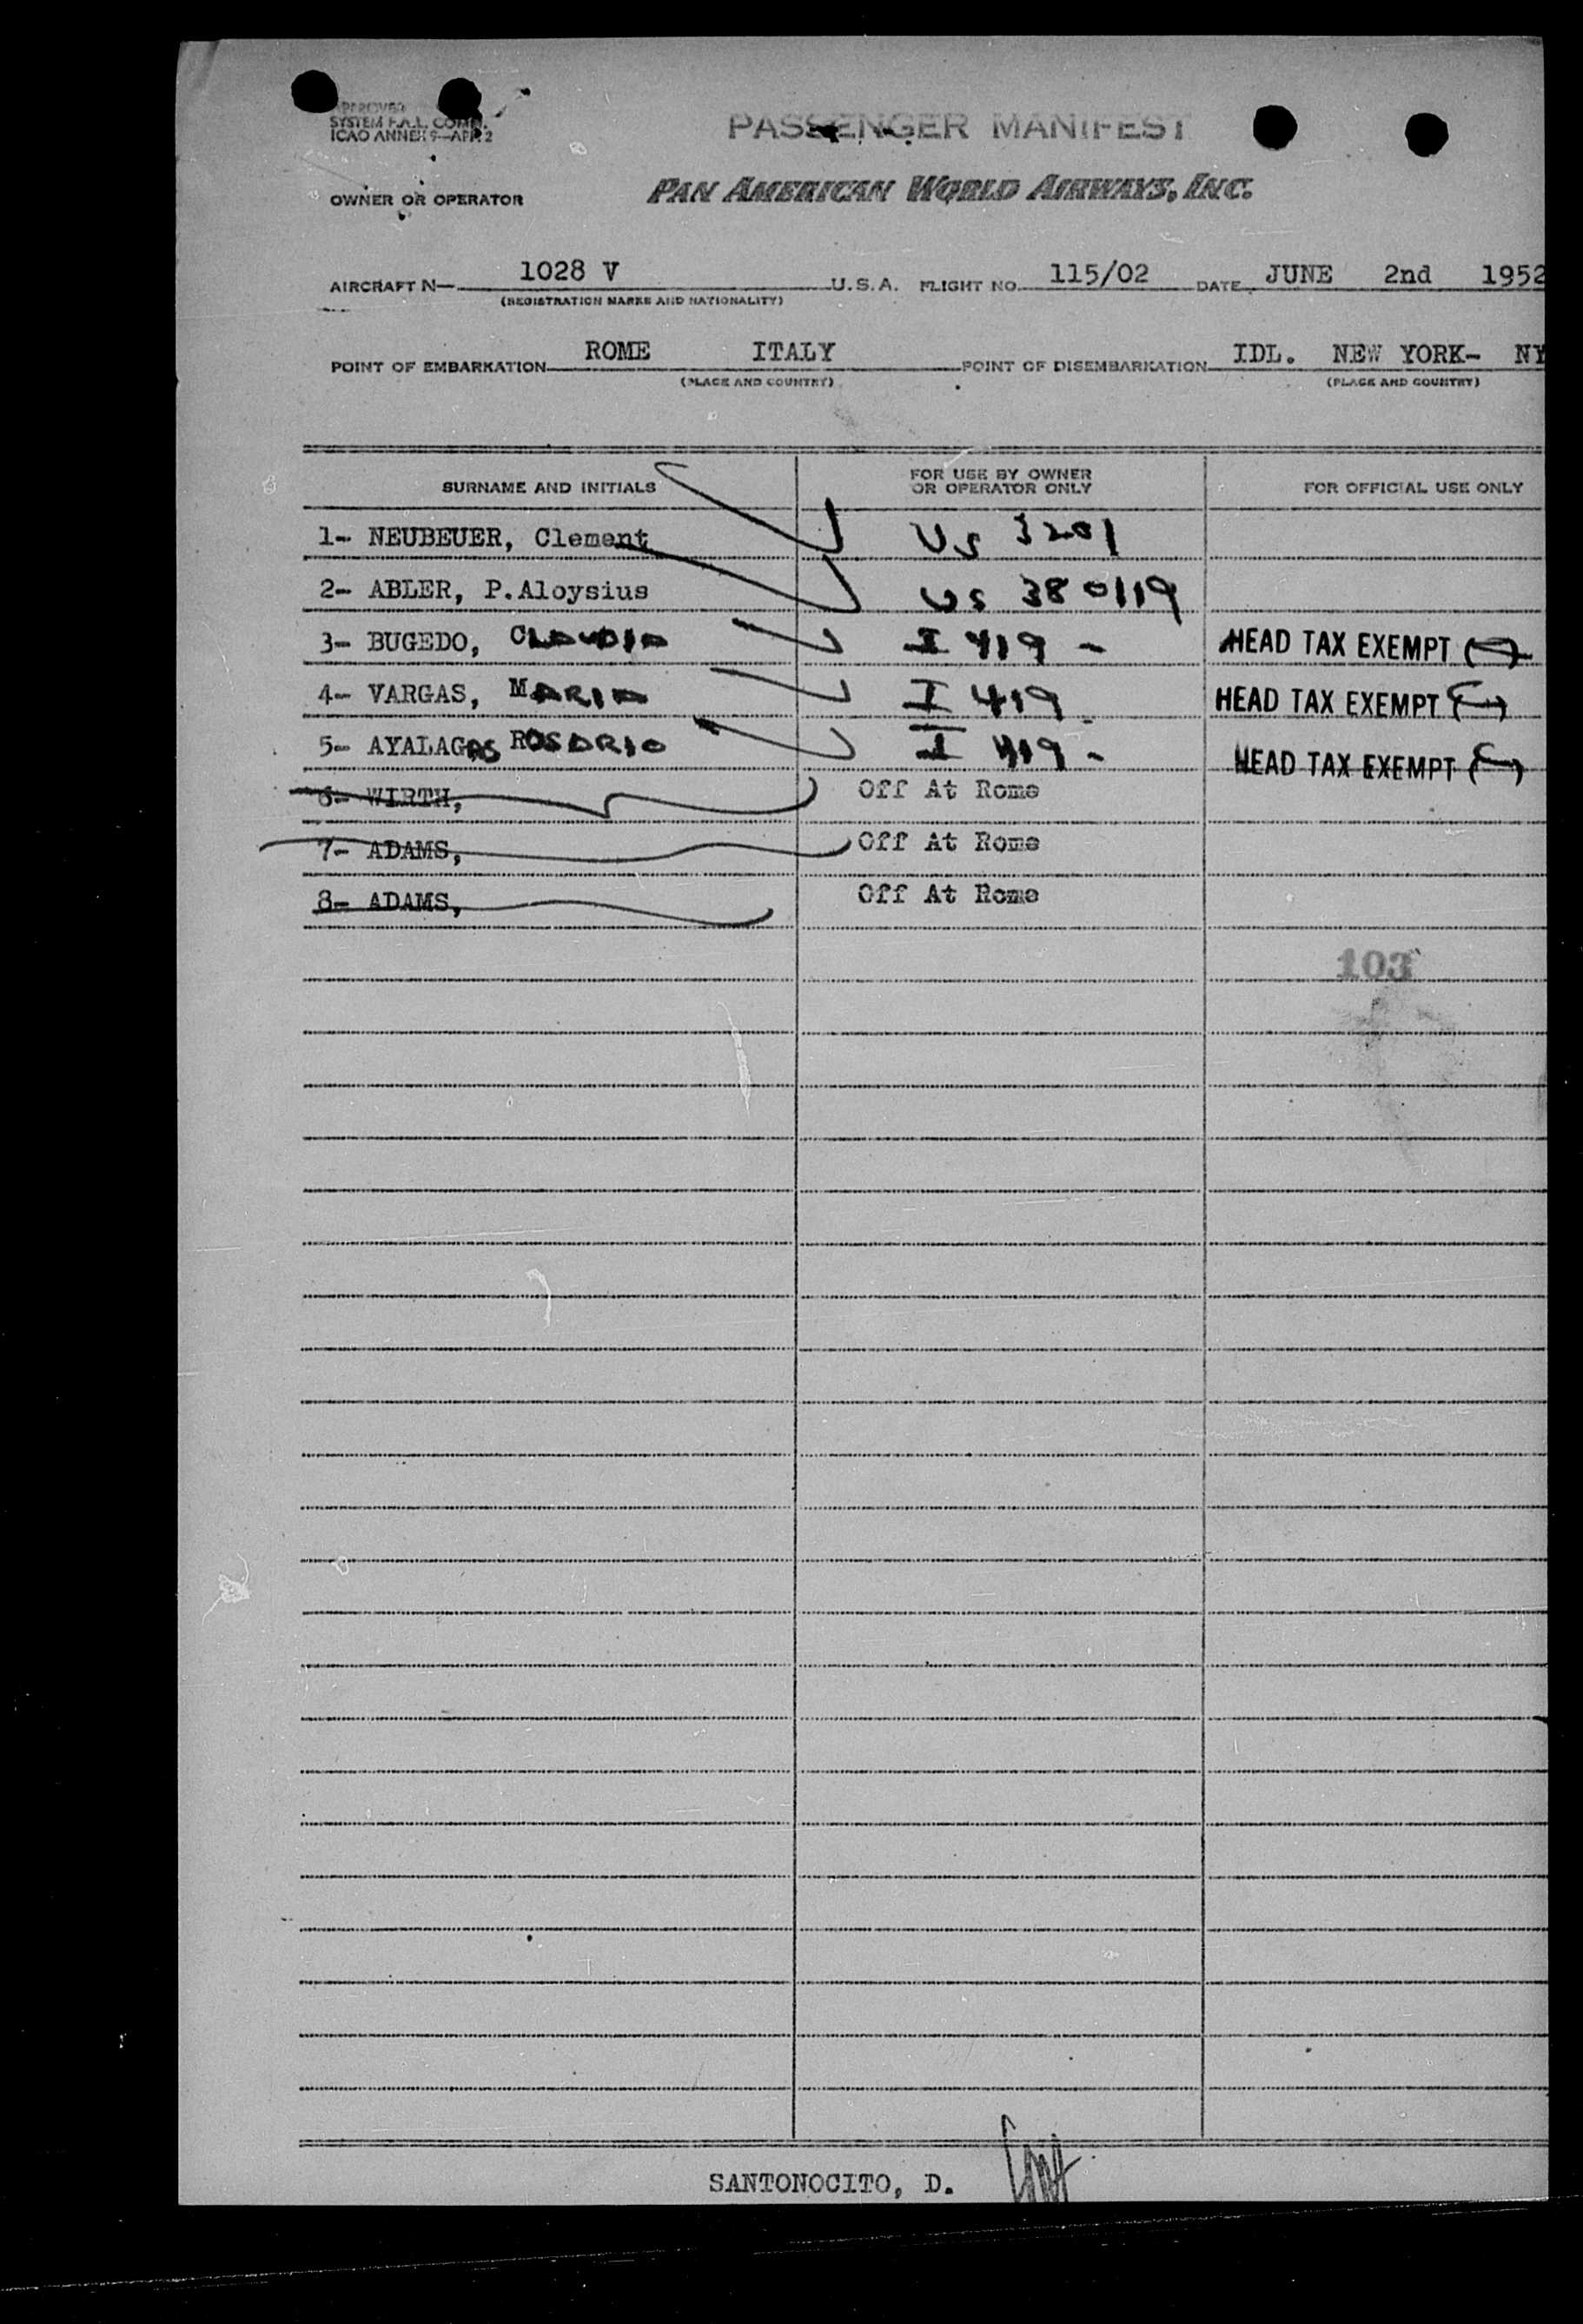 APPROVED
SYSTEM F.A.L. COMM.
ICAO ANNEX 9—APP. 2
PASSENGER MANIFEST
OWNER OR OPERATOR PAN AMERICAN WORLD AIRWAYS, INC.
AIRCRAFT N— 1028 V U.S.A. FLIGHT NO. 115/02 DATE JUNE 2nd 1952
(REGISTRATION MARKS AND NATIONALITY)
POINT OF EMBARKATION ROME ITALY POINT OF DISEMBARKATION IDL. NEW YORK- NY
(PLACE AND COUNTRY) (PLACE AND COUNTRY)
SURNAME AND INITIALS FOR USE BY OWNER OR OPERATOR ONLY FOR OFFICIAL USE ONLY
1- NEUBEUER, Clement US 3201
2- ABLER, P.Aloysius US 380119
3- BUGEDO, CLAUDIA I 419 - HEAD TAX EXEMPT
4- VARGAS, MARIA I 419 - HEAD TAX EXEMPT
5- AYALAGAS ROSARIO I 419 - HEAD TAX EXEMPT
6- WIRTH, Off At Rome
7- ADAMS, Off At Rome
8- ADAMS, Off At Rome
103
SANTONOCITO, D.